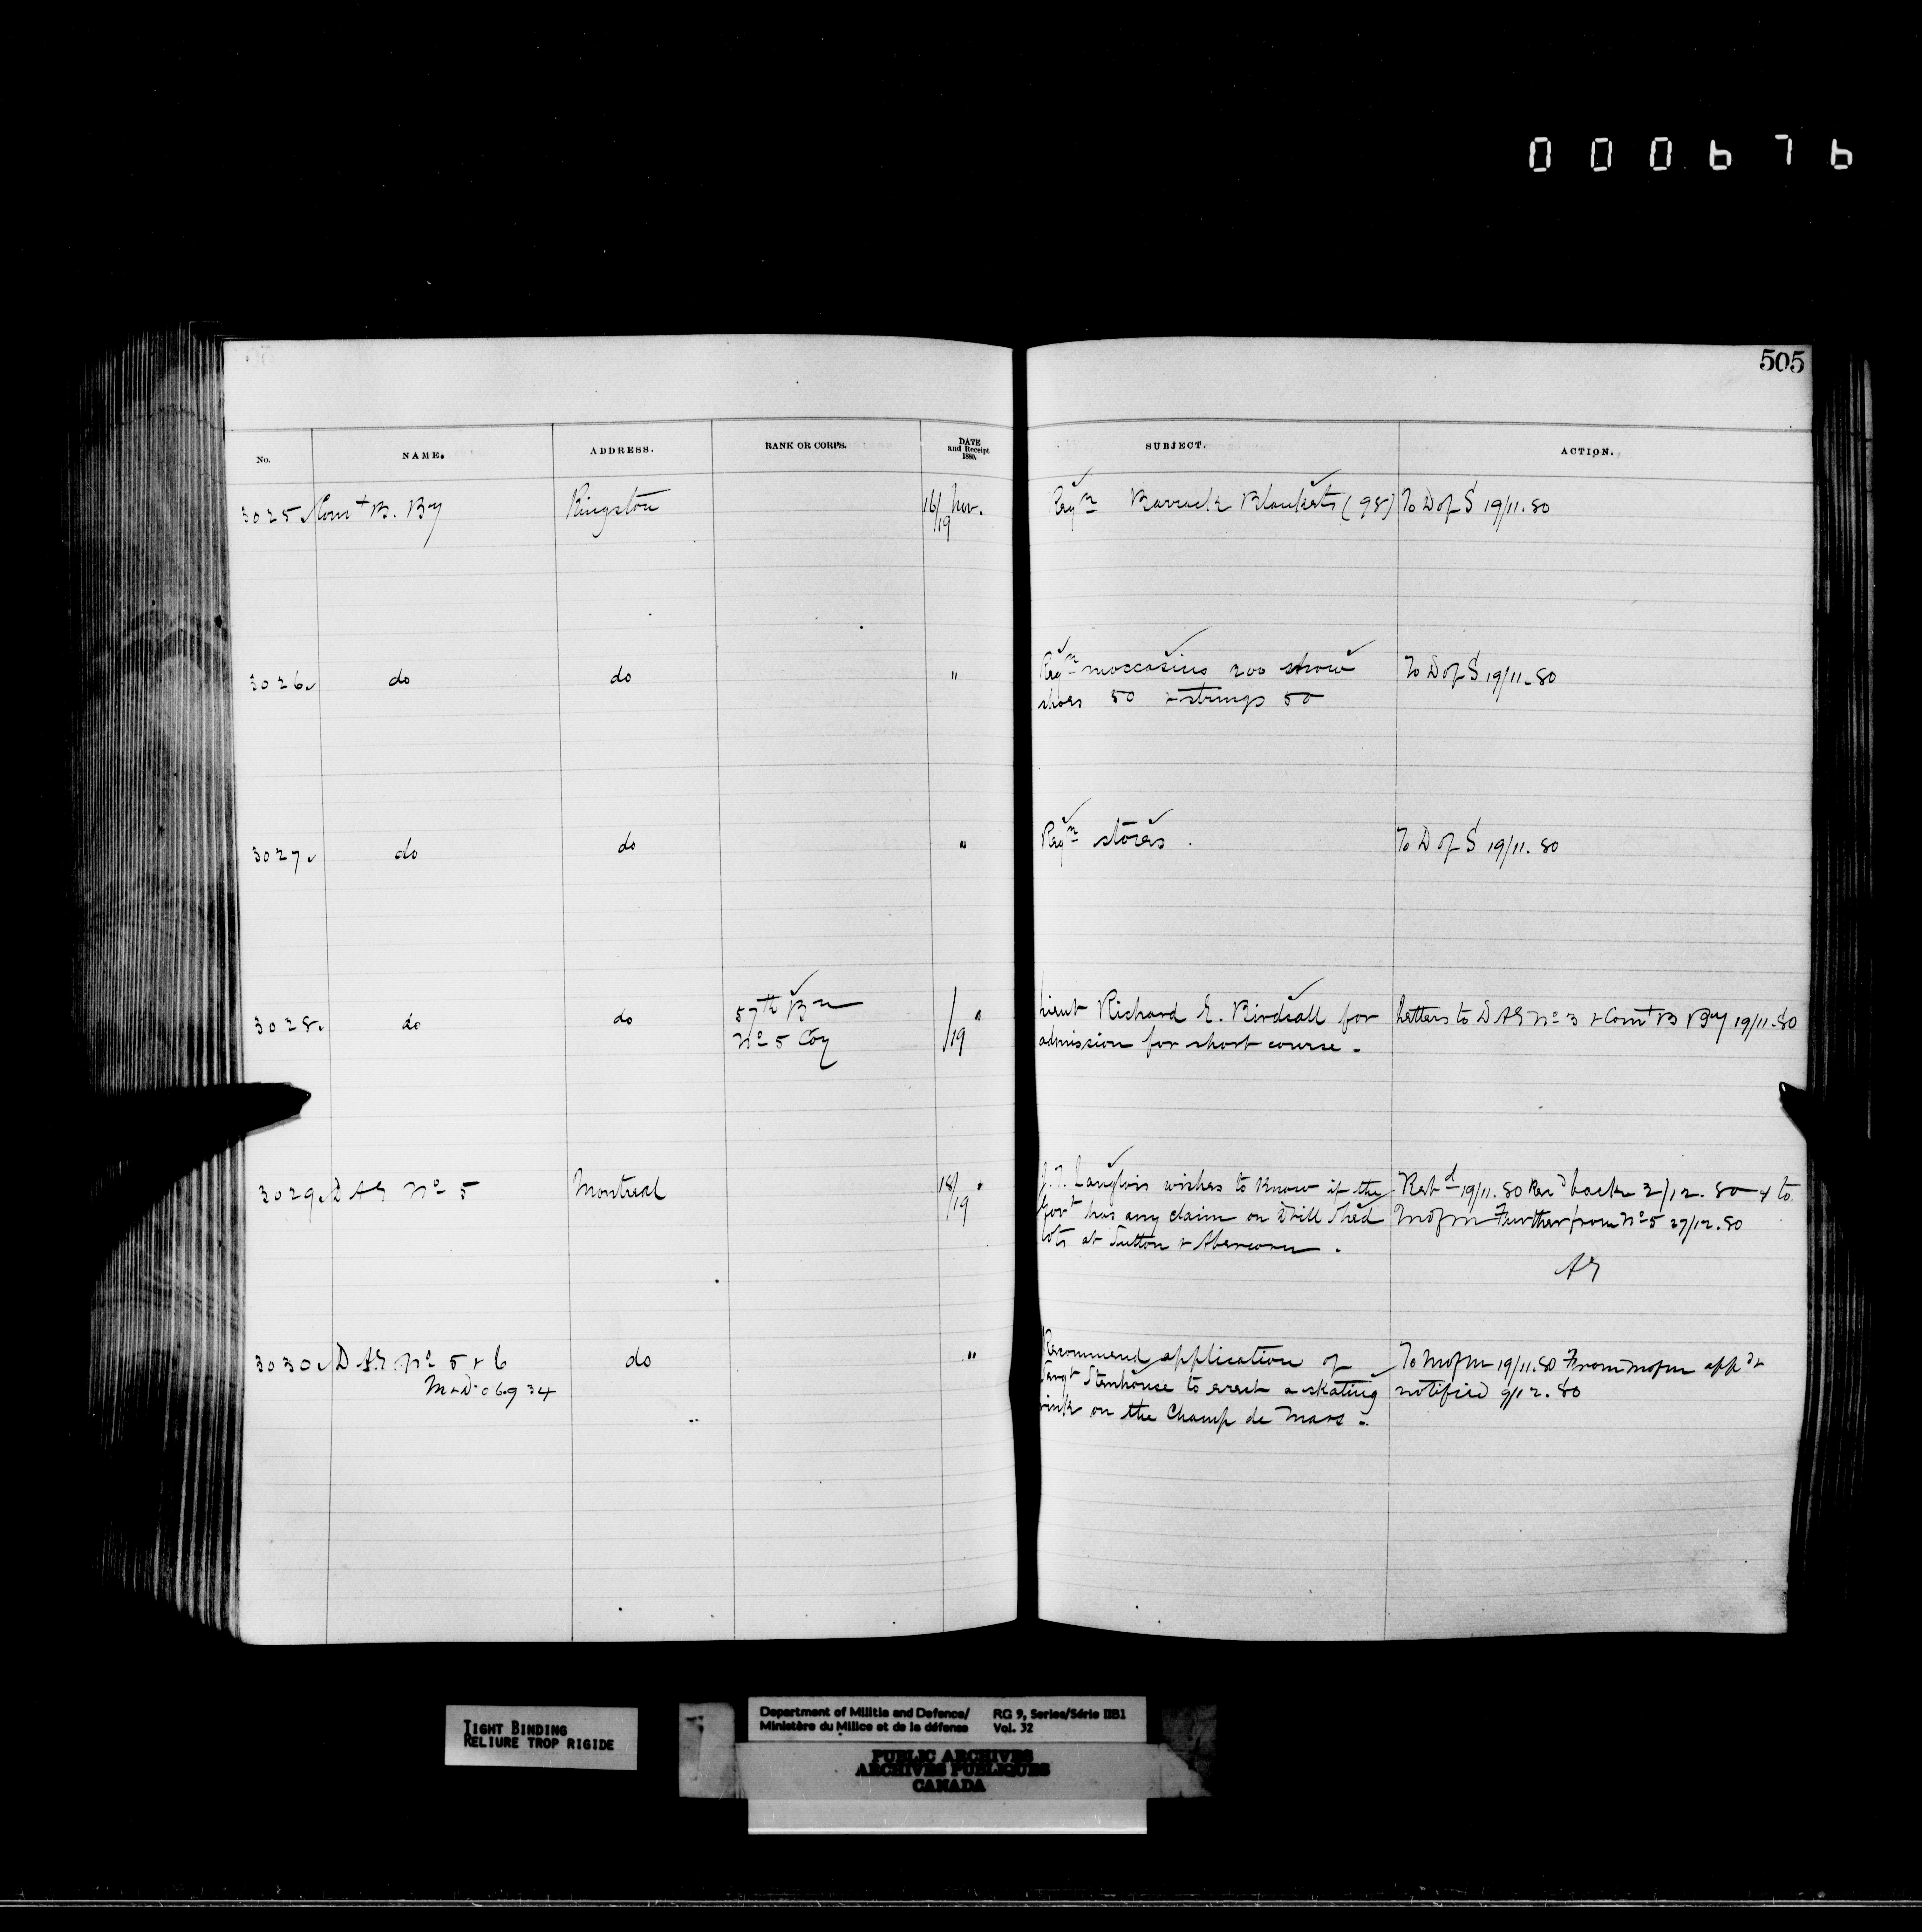 000676
505
No. NAME. ADDRESS. RANK OR CORPS. DATE and Receipt 1880. SUBJECT. ACTION.
3025 Comt B. By Kingston 16/19 Nov. Reqn Barrack Blankets (98) To D of S 19/11.80
3026 do do " Reqn moccasins 200 snow To D of S 19/11.80
shoes 50 + strings 50
3027 do do " Reqn stores. To D of S 19/11.80
3028 do do 57th Bn /19 " Lieut Richard E. Birdsall for Letters to DAG No 3 + Comt B By 19/11.80
No 5 Coy admission for short course.
3029 DAG No 5 Montreal 18/19 " Langlois wishes to know if the 19/11.80 back 2/12.80 + to
Govt has any claim on Drill Shed M of M Further from No 5 27/12.80
lots at Sutton + Abercorn.
AG
3030 DAG No 5 + 6 do " Recommend application of To M of M 19/11.80 From M of M appd +
M + D. 06934 Stenhouse to erect a skating notified 9/12.80
rink on the Champ de Mars.
TIGHT BINDING
RELIURE TROP RIGIDE
Department of Militia and Defence/ RG 9, Series/Série IIB1
Ministère du Milice et de la défense Vol. 32
PUBLIC ARCHIVES
ARCHIVES PUBLIQUES
CANADA